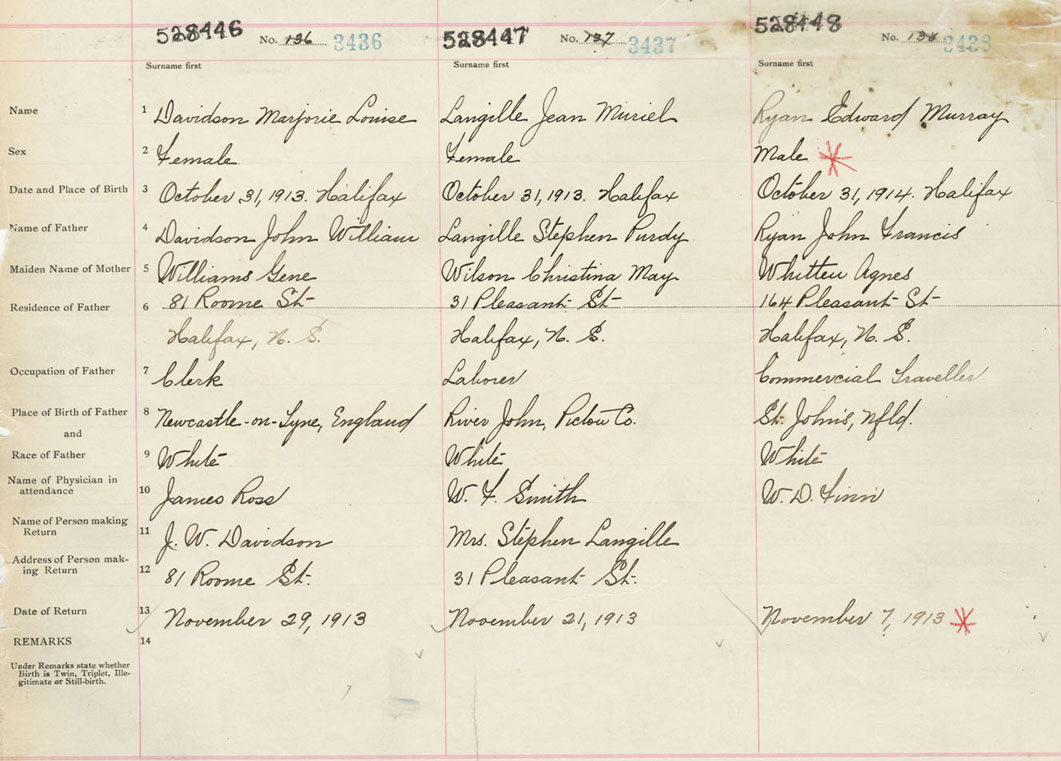 528446 No. 136 3436 528447 No. 137 3437 528448 No. 138 3438
Surname first Surname first Surname first
Name 1 Davidson Marjorie Louise Langille Jean Muriel Ryan Edward Murray
Sex 2 Female Female Male
Date and Place of Birth 3 October 31, 1913. Halifax October 31, 1913. Halifax October 31, 1914. Halifax
Name of Father 4 Davidson John William Langille Stephen Purdy Ryan John Francis
Maiden Name of Mother 5 Williams Gene Wilson Christina May Whitten Agnes
Residence of Father 6 81 Roome St 31 Pleasant St 164 Pleasant St
Halifax, N. S. Halifax, N. S. Halifax, N. S.
Occupation of Father 7 Clerk Laborer Commercial Traveller
Place of Birth of Father 8 Newcastle-on-Tyne, England River John, Pictou Co. St. John's, Nfld.
and
Race of Father 9 White White White
Name of Physician in
attendance 10 James Ross W. F. Smith W. D. Finn
Name of Person making
Return 11 J. W. Davidson Mrs. Stephen Langille
Address of Person mak-
ing Return 12 81 Roome St. 31 Pleasant St.
Date of Return 13 November 29, 1913 November 21, 1913 November 7, 1913
REMARKS 14
Under Remarks state whether
Birth is Twin, Triplet, Ille-
gitimate or Still-birth.